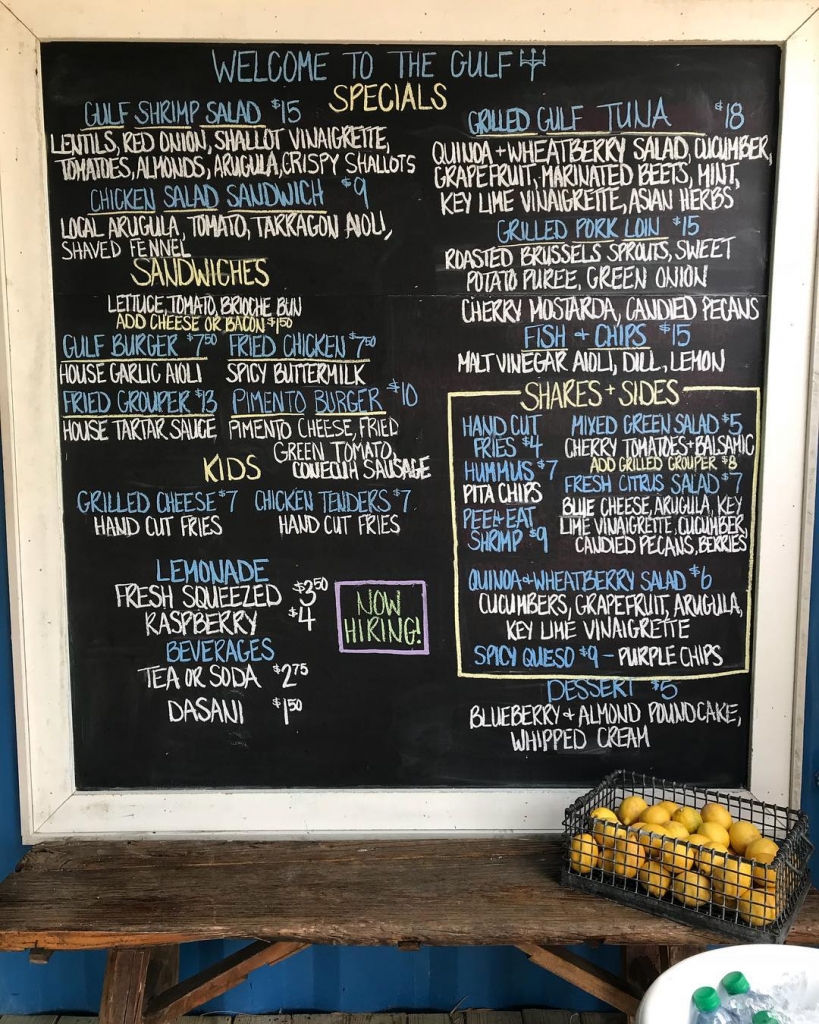 WELCOME TO THE GULF
SPECIALS
GULF SHRIMP SALAD $15
LENTILS, RED ONION, SHALLOT VINAIGRETTE,
TOMATOES, ALMONDS, ARUGULA, CRISPY SHALLOTS
CHICKEN SALAD SANDWICH $9
LOCAL ARUGULA, TOMATO, TARRAGON AIOLI,
SHAVED FENNEL
SANDWICHES
LETTUCE, TOMATO, BRIOCHE BUN
ADD CHEESE OR BACON $1.50
GULF BURGER $7.50 FRIED CHICKEN $7.50
HOUSE GARLIC AIOLI SPICY BUTTERMILK
FRIED GROUPER $13 PIMENTO BURGER $10
HOUSE TARTAR SAUCE PIMENTO CHEESE, FRIED
GREEN TOMATO,
CONECUH SAUSAGE
KIDS
GRILLED CHEESE $7 CHICKEN TENDERS $7
HAND CUT FRIES HAND CUT FRIES
LEMONADE
FRESH SQUEEZED $3.50
RASPBERRY $4
BEVERAGES
TEA OR SODA $2.75
DASANI $1.50
NOW
HIRING!
GRILLED GULF TUNA $18
QUINOA + WHEATBERRY SALAD, CUCUMBER,
GRAPEFRUIT, MARINATED BEETS, MINT,
KEY LIME VINAIGRETTE, ASIAN HERBS
GRILLED PORK LOIN $15
ROASTED BRUSSELS SPROUTS, SWEET
POTATO PUREE, GREEN ONION
CHERRY MOSTARDA, CANDIED PECANS
FISH + CHIPS $15
MALT VINEGAR AIOLI, DILL, LEMON
SHARES + SIDES
HAND CUT
FRIES $4
HUMMUS $7
PITA CHIPS
PEEL + EAT
SHRIMP $9
MIXED GREEN SALAD $5
CHERRY TOMATOES + BALSAMIC
ADD GRILLED GROUPER $8
FRESH CITRUS SALAD $7
BLUE CHEESE, ARUGULA, KEY
LIME VINAIGRETTE, CUCUMBER,
CANDIED PECANS, BERRIES
QUINOA + WHEATBERRY SALAD $6
CUCUMBERS, GRAPEFRUIT, ARUGULA,
KEY LIME VINAIGRETTE
SPICY QUESO $9 - PURPLE CHIPS
DESSERT $5
BLUEBERRY + ALMOND POUNDCAKE,
WHIPPED CREAM